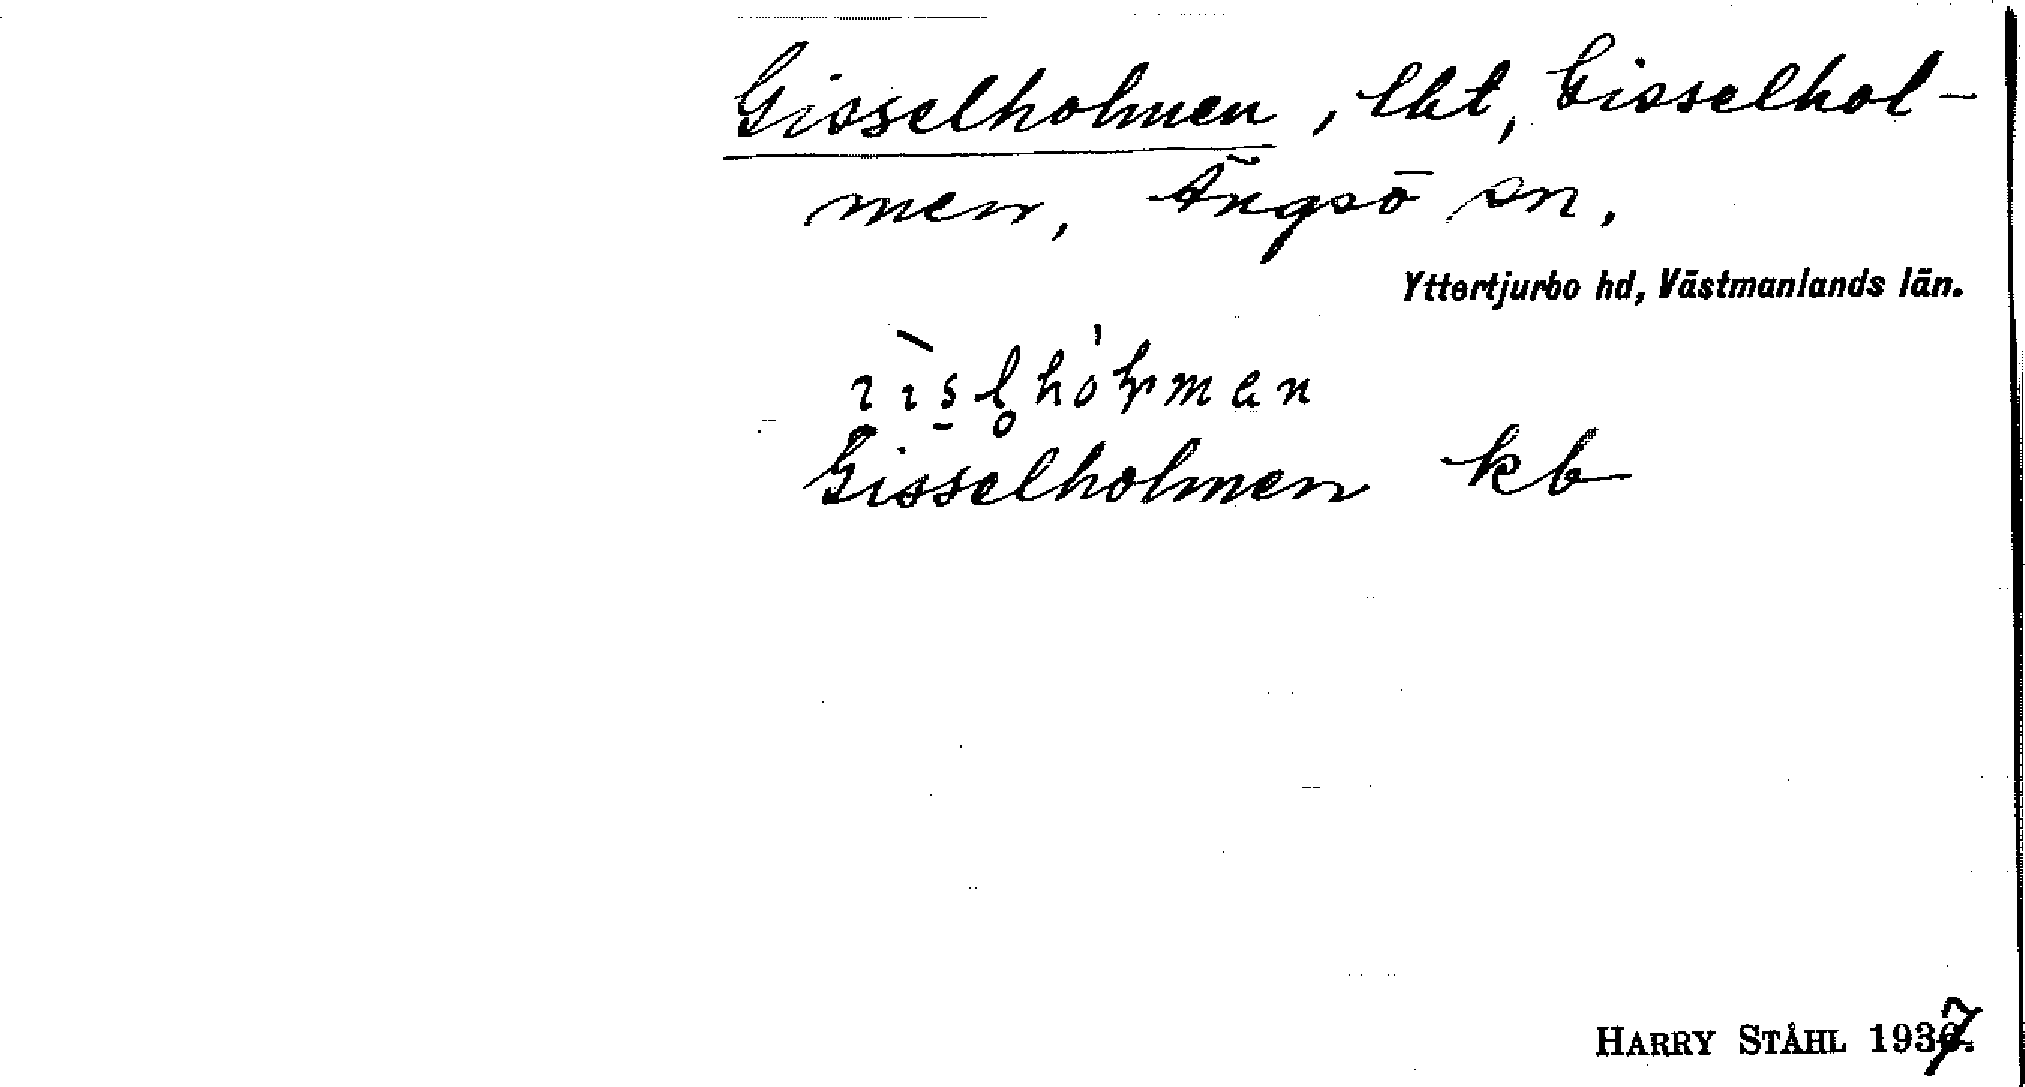 Gisselholmen, lht, Gisselhol-
men, Ängsö sn.
Yttertjurbo hd, Västmanlands län.
Gisselholmen kb
HARRY STÅHL 1937.